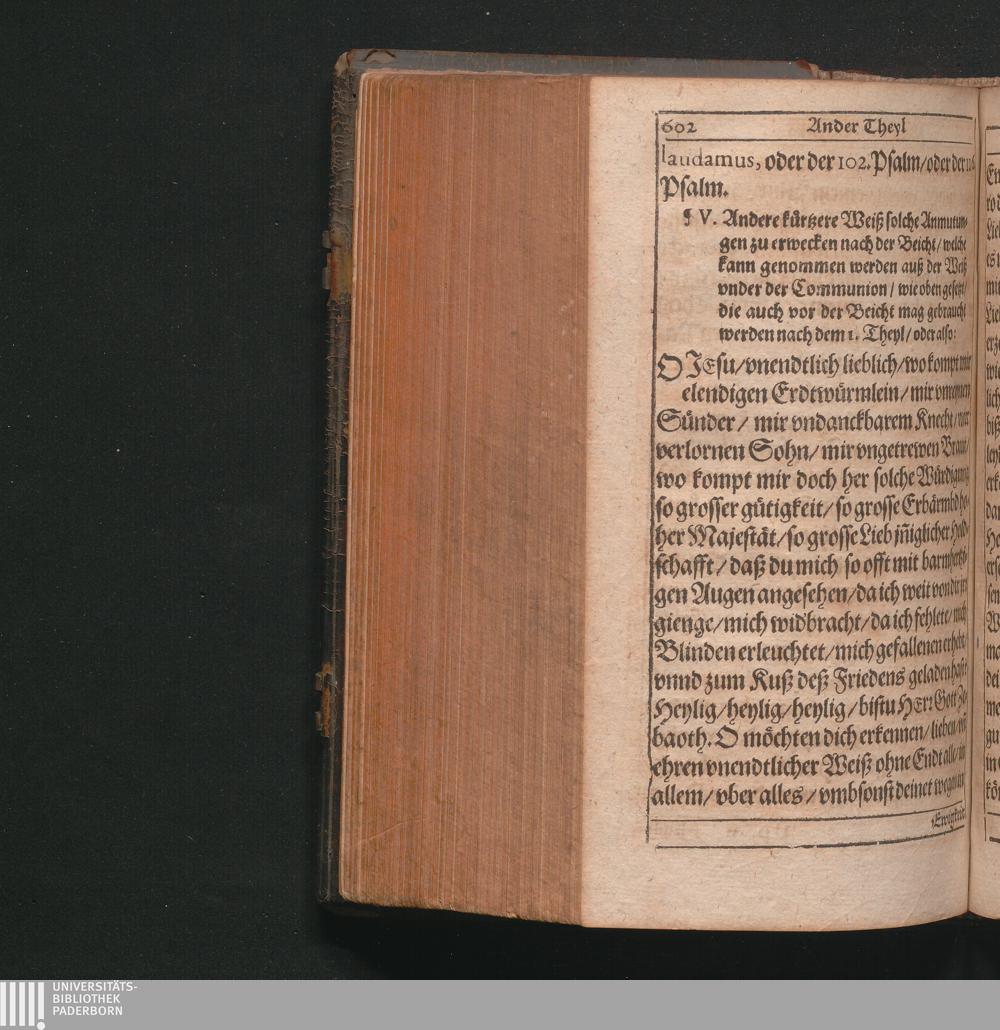 602 Ander Theyl
laudamus, oder der 102. Psalm/oder der
Psalm.
¶ V. Andere kürtzere Weiß solche Anmutun-
gen zu erwecken nach der Beicht/ welche
kann genommen werden auß der Weiß
vnder der Communion / wie oben gesetzt/
die auch vor der Beicht mag gebraucht
werden nach dem 1. Theyl/ oder also:
O JEsu/vnendtlich lieblich/wo kompt mir
elendigen Erdtwürmlein/ mir
Sünder / mir vndanckbarem Knecht/ mir
verlornen Sohn/ mir vngetrewen Braut/
wo kompt mir doch her solche Würdigung
so grosser gütigkeit/ so grosse Erbärmbd ho-
her Majestät/so grosse Lieb jñiglicher Hold-
schafft/ daß du mich so offt mit barmhertzi-
gen Augen angesehen/da ich weit von dir
gienge/mich widbracht/da ich fehlete/ mich
Blinden erleuchtet/mich gefallenen erhebt/
vnnd zum Kuß deß Friedens geladen hast?
Heylig/heylig/heylig/ bistu HErr Gott Ze-
baoth. O möchten dich erkennen/ lieben/
ehren vnendtlicher Weiß ohne Endt alle/ in
allem/ vber alles / vmbsonst deinet wegen in
UNIVERSITÄTS-
BIBLIOTHEK
PADERBORN